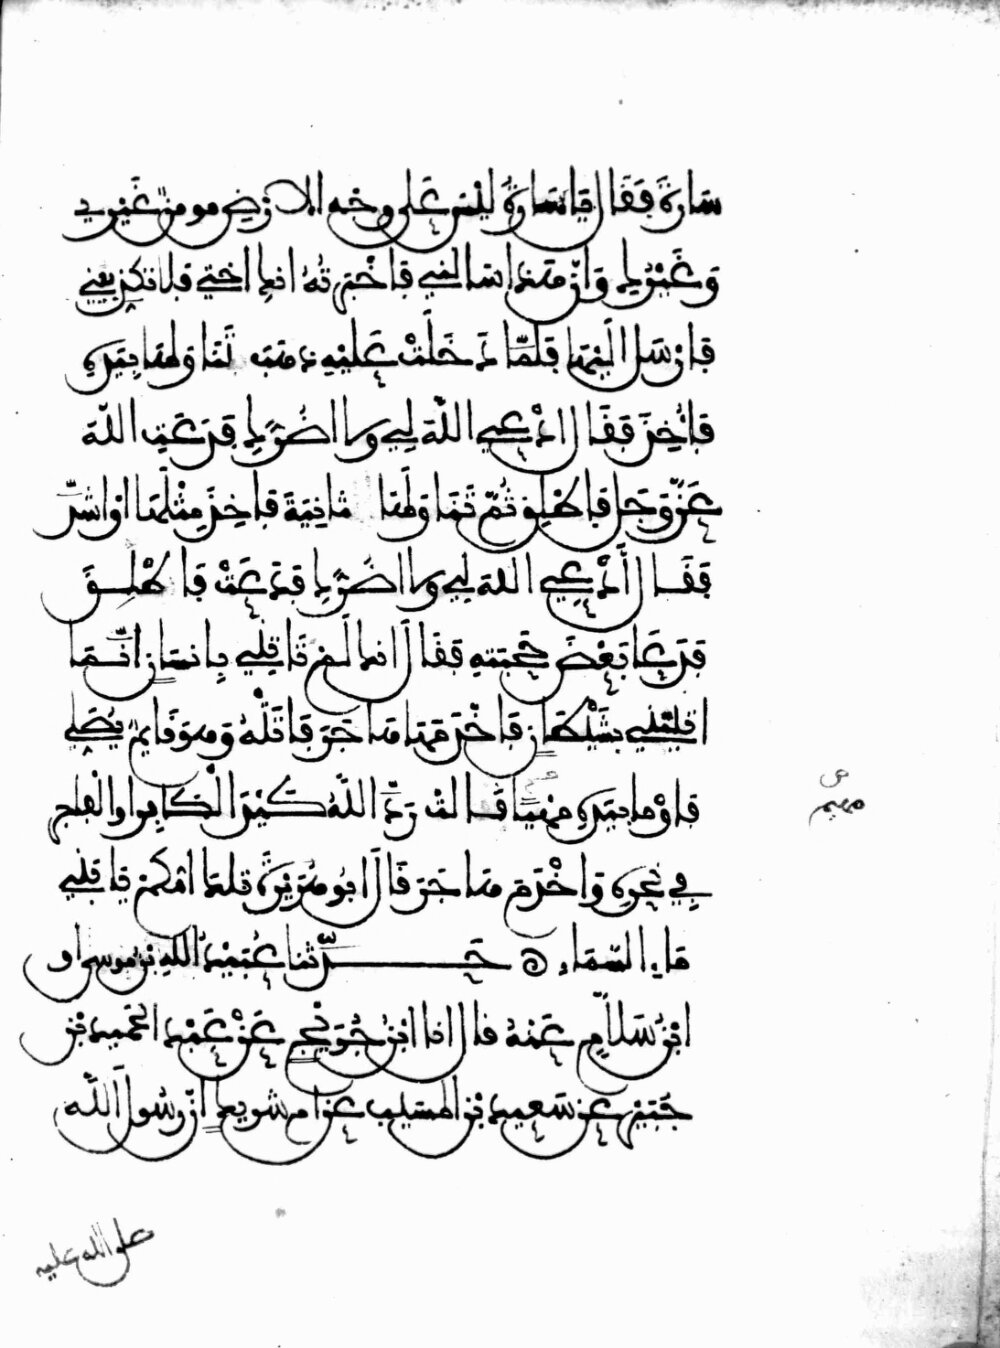 سَارَةَ فَقَالَ يَا سَارَةُ لَيْسَ عَلَى وَجْهِ الارْضِ مومنٌ غَيْرِي
وَغَيْرُكِ وَانَّ هَذَا سَالَنِي فَاخْبَرْتُهُ انكِ اخْتِي فَلا تكذبيني
فَارْسَلَ الَيْهَا فَلَمَّا دَخَلَتْ عَلَيْهِ ذهَبَ يَتَنَاوَلهَا بِيَدِهِ
فَأُخِذَ فَقَالَ ادْعِي اللَّهَ لِي ولا اضُرُّكِ فَدَعَتِ اللَّهَ
عَزَّ وَجَلَّ فَاطْلِقَ ثُمَّ تَنَاوَلَهَا ثَانِيَةً فَاخِذَ مِثْلَهَا اوَ اشَدَّ
فَقَالَ أدْعِي اللهَ لِي ولا اضُرُّكِ فَدَعَتْ فَاطْلِقَ
فَدَعَا بَعْضَ حَجَبَتِهِ فَقَالَ انكَ لَمْ تَاتِنِي بِانسَانٍ انَّمَا
اتَيْتَنِي بِشَيْطَانٍ فَاخْدَمَهَا هَاجَرَ فَاتَتْهُ وَهوَ قَايمٌ يُصَلِّي
فَاوْمَا بِيَدِهِ مَهْيَا قَالَتْ رَدَّ اللَّهُ كَيْدَ الْكَافِرِ او الْفَاجِرِ
فِي نَحْرِهِ وَاخْدَمَ هَاجَرَ قَالَ ابُو هُرَيْرَةَ فَتِلْكَ امُّكُمْ يَا بَنِي
مَاءِ السَّمَاءِ ه حَدَّثَنَا عُبَيْدُ اللَّهِ بْنُ مُوسَى او
ابْنُ سَلامٍ عَنْهُ قَالَ انا ابْنُ جُرَيْجٍ عَنْ عَبْدِ الحَمِيدِ بْنِ
جُبَيْرٍ عَنْ سَعِيدِ بْنِ الْمُسَيَّبِ عَنْ امِّ شَرِيكٍ انَّ رَسُولَ اللَّهِ
صلى الله عليه
ص
مهيم